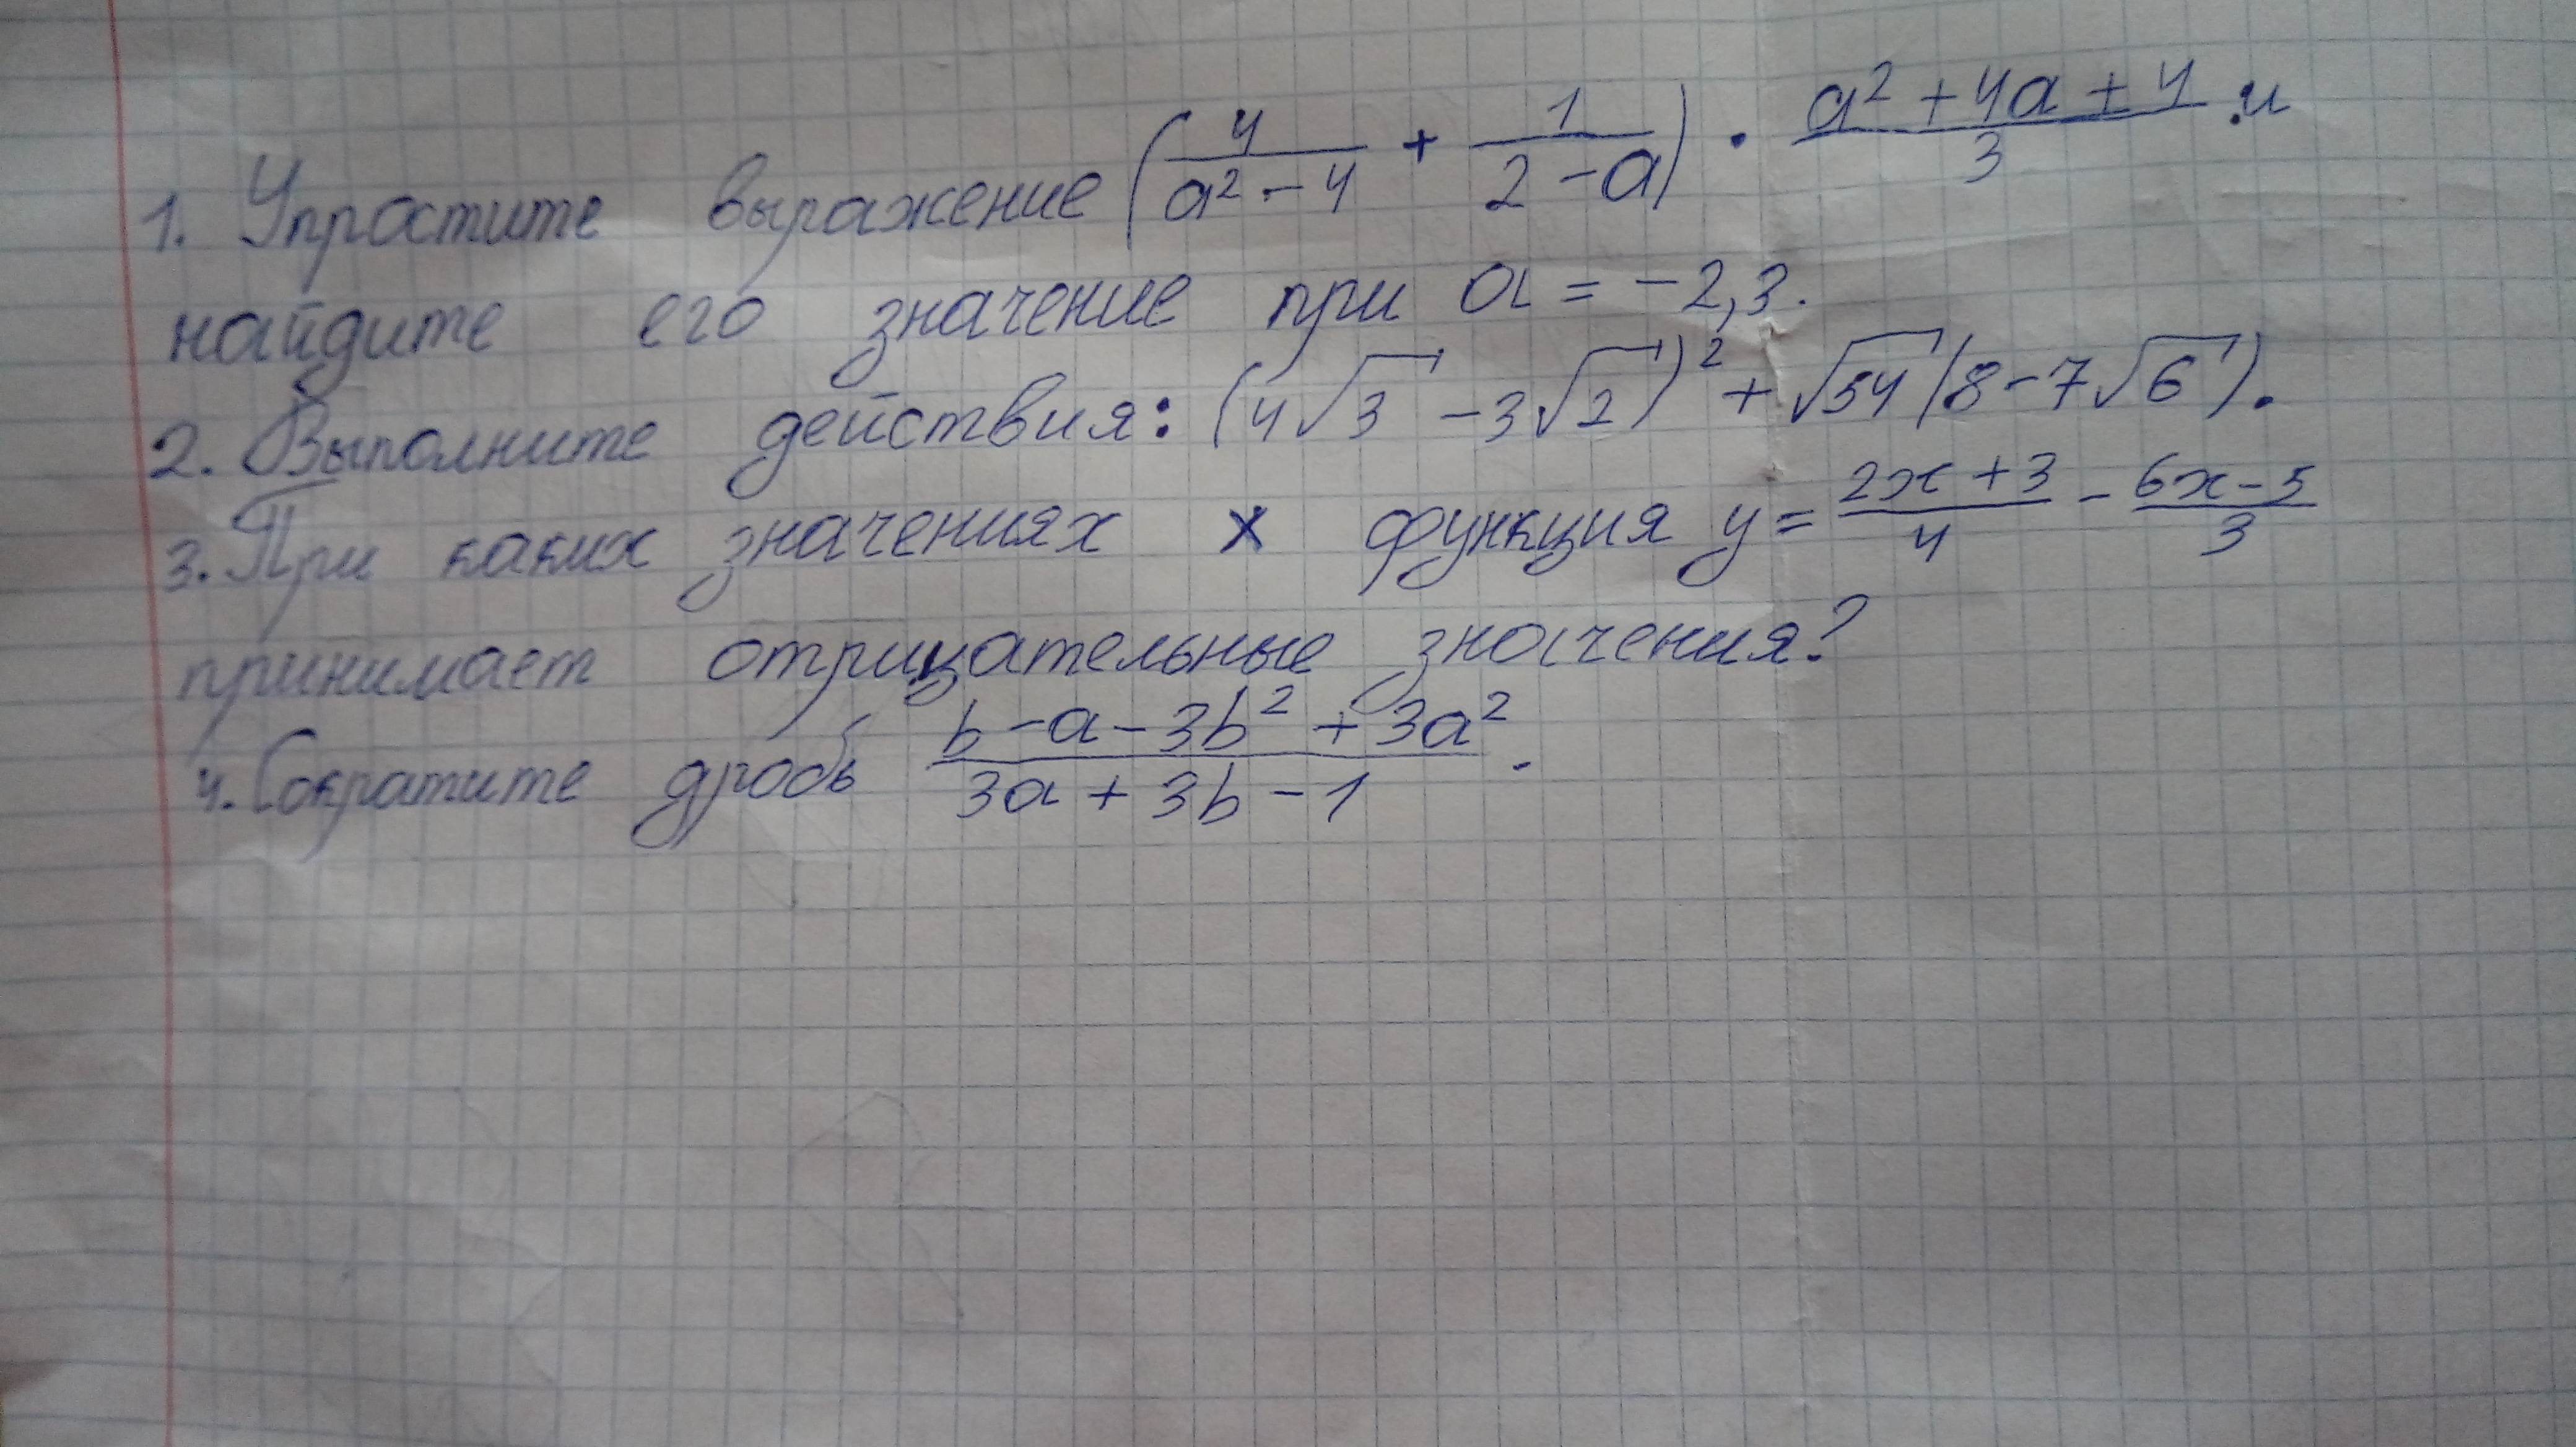 1. Упростите выражение (4/(a² - 4) + 1/(2 - a)) · (a² + 4a + 4)/3 . и
найдите его значение при a = -2,3.
2. Выполните действия: (4√3 - 3√2)² + √54 (8 - 7√6).
3. При каких значениях x функция y = (2x + 3)/4 - (6x - 5)/3
принимает отрицательные значения?
4. Сократите дробь (b - a - 3b² + 3a²)/(3a + 3b - 1).